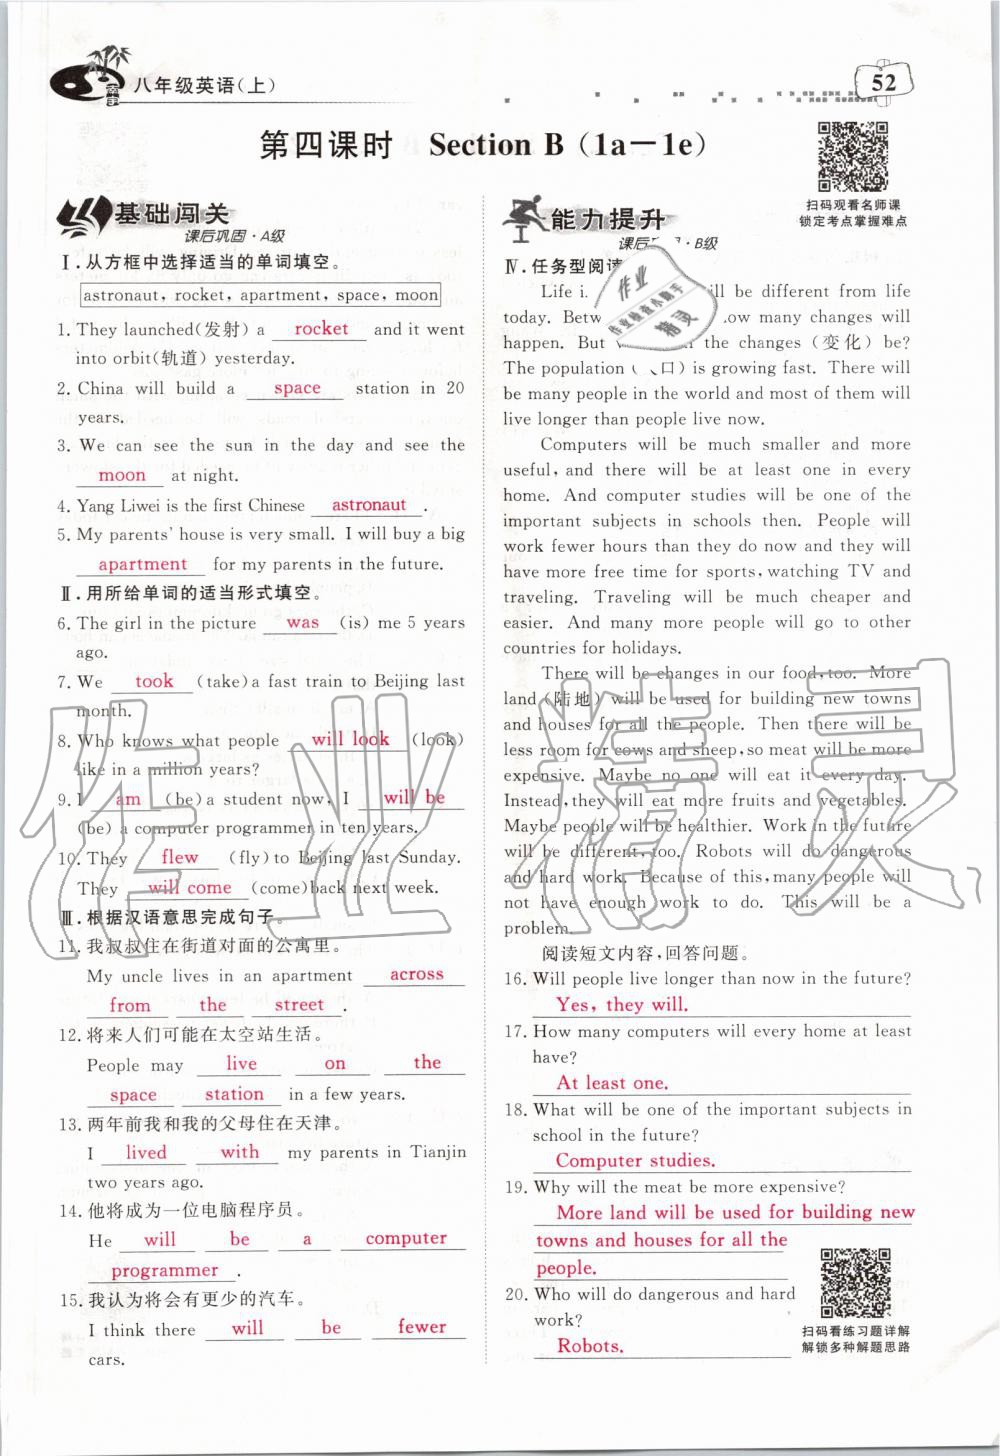 八年级英语(上)
52
第四课时 Section B (1a—1e)
扫码观看名师课
锁定考点掌握难点
基础闯关
课后巩固·A级
Ⅰ.从方框中选择适当的单词填空。
astronaut, rocket, apartment, space, moon
1. They launched(发射) a rocket and it went
into orbit(轨道) yesterday.
2. China will build a space station in 20
years.
3. We can see the sun in the day and see the
moon at night.
4. Yang Liwei is the first Chinese astronaut .
5. My parents' house is very small. I will buy a big
apartment for my parents in the future.
Ⅱ.用所给单词的适当形式填空。
6. The girl in the picture was (is) me 5 years
ago.
7. We took (take) a fast train to Beijing last
month.
8. Who knows what people will look (look)
like in a million years?
9. I am (be) a student now, I will be
(be) a computer programmer in ten years.
10. They flew (fly) to Beijing last Sunday.
They will come (come)back next week.
Ⅲ.根据汉语意思完成句子。
11. 我叔叔住在街道对面的公寓里。
My uncle lives in an apartment across
from the street .
12. 将来人们可能在太空站生活。
People may live on the
space station in a few years.
13. 两年前我和我的父母住在天津。
I lived with my parents in Tianjin
two years ago.
14. 他将成为一位电脑程序员。
He will be a computer
programmer .
15. 我认为将会有更少的汽车。
I think there will be fewer
cars.
能力提升
课后 ·B级
Ⅳ.任务型阅读
Life i ill be different from life
today. Betw ow many changes will
happen. But the changes (变化) be?
The population ( 口) is growing fast. There will
be many people in the world and most of them will
live longer than people live now.
Computers will be much smaller and more
useful, and there will be at least one in every
home. And computer studies will be one of the
important subjects in schools then. People will
work fewer hours than they do now and they will
have more free time for sports, watching TV and
traveling. Traveling will be much cheaper and
easier. And many more people will go to other
countries for holidays.
There will be changes in our food, too. More
land (陆地) will be used for building new towns
and houses for all the people. Then there will be
less room for cows and sheep, so meat will be more
expensive. Maybe no one will eat it every day.
Instead, they will eat more fruits and vegetables.
Maybe people will be healthier. Work in the future
will be different, too. Robots will do dangerous
and hard work. Because of this, many people will
not have enough work to do. This will be a
problem.
阅读短文内容,回答问题。
16. Will people live longer than now in the future?
Yes, they will.
17. How many computers will every home at least
have?
At least one.
18. What will be one of the important subjects in
school in the future?
Computer studies.
19. Why will the meat be more expensive?
More land will be used for building new
towns and houses for all the
people.
20. Who will do dangerous and hard
work?
Robots.
扫码看练习题详解
解锁多种解题思路
作业精灵
作业
作业检查小助手
精灵